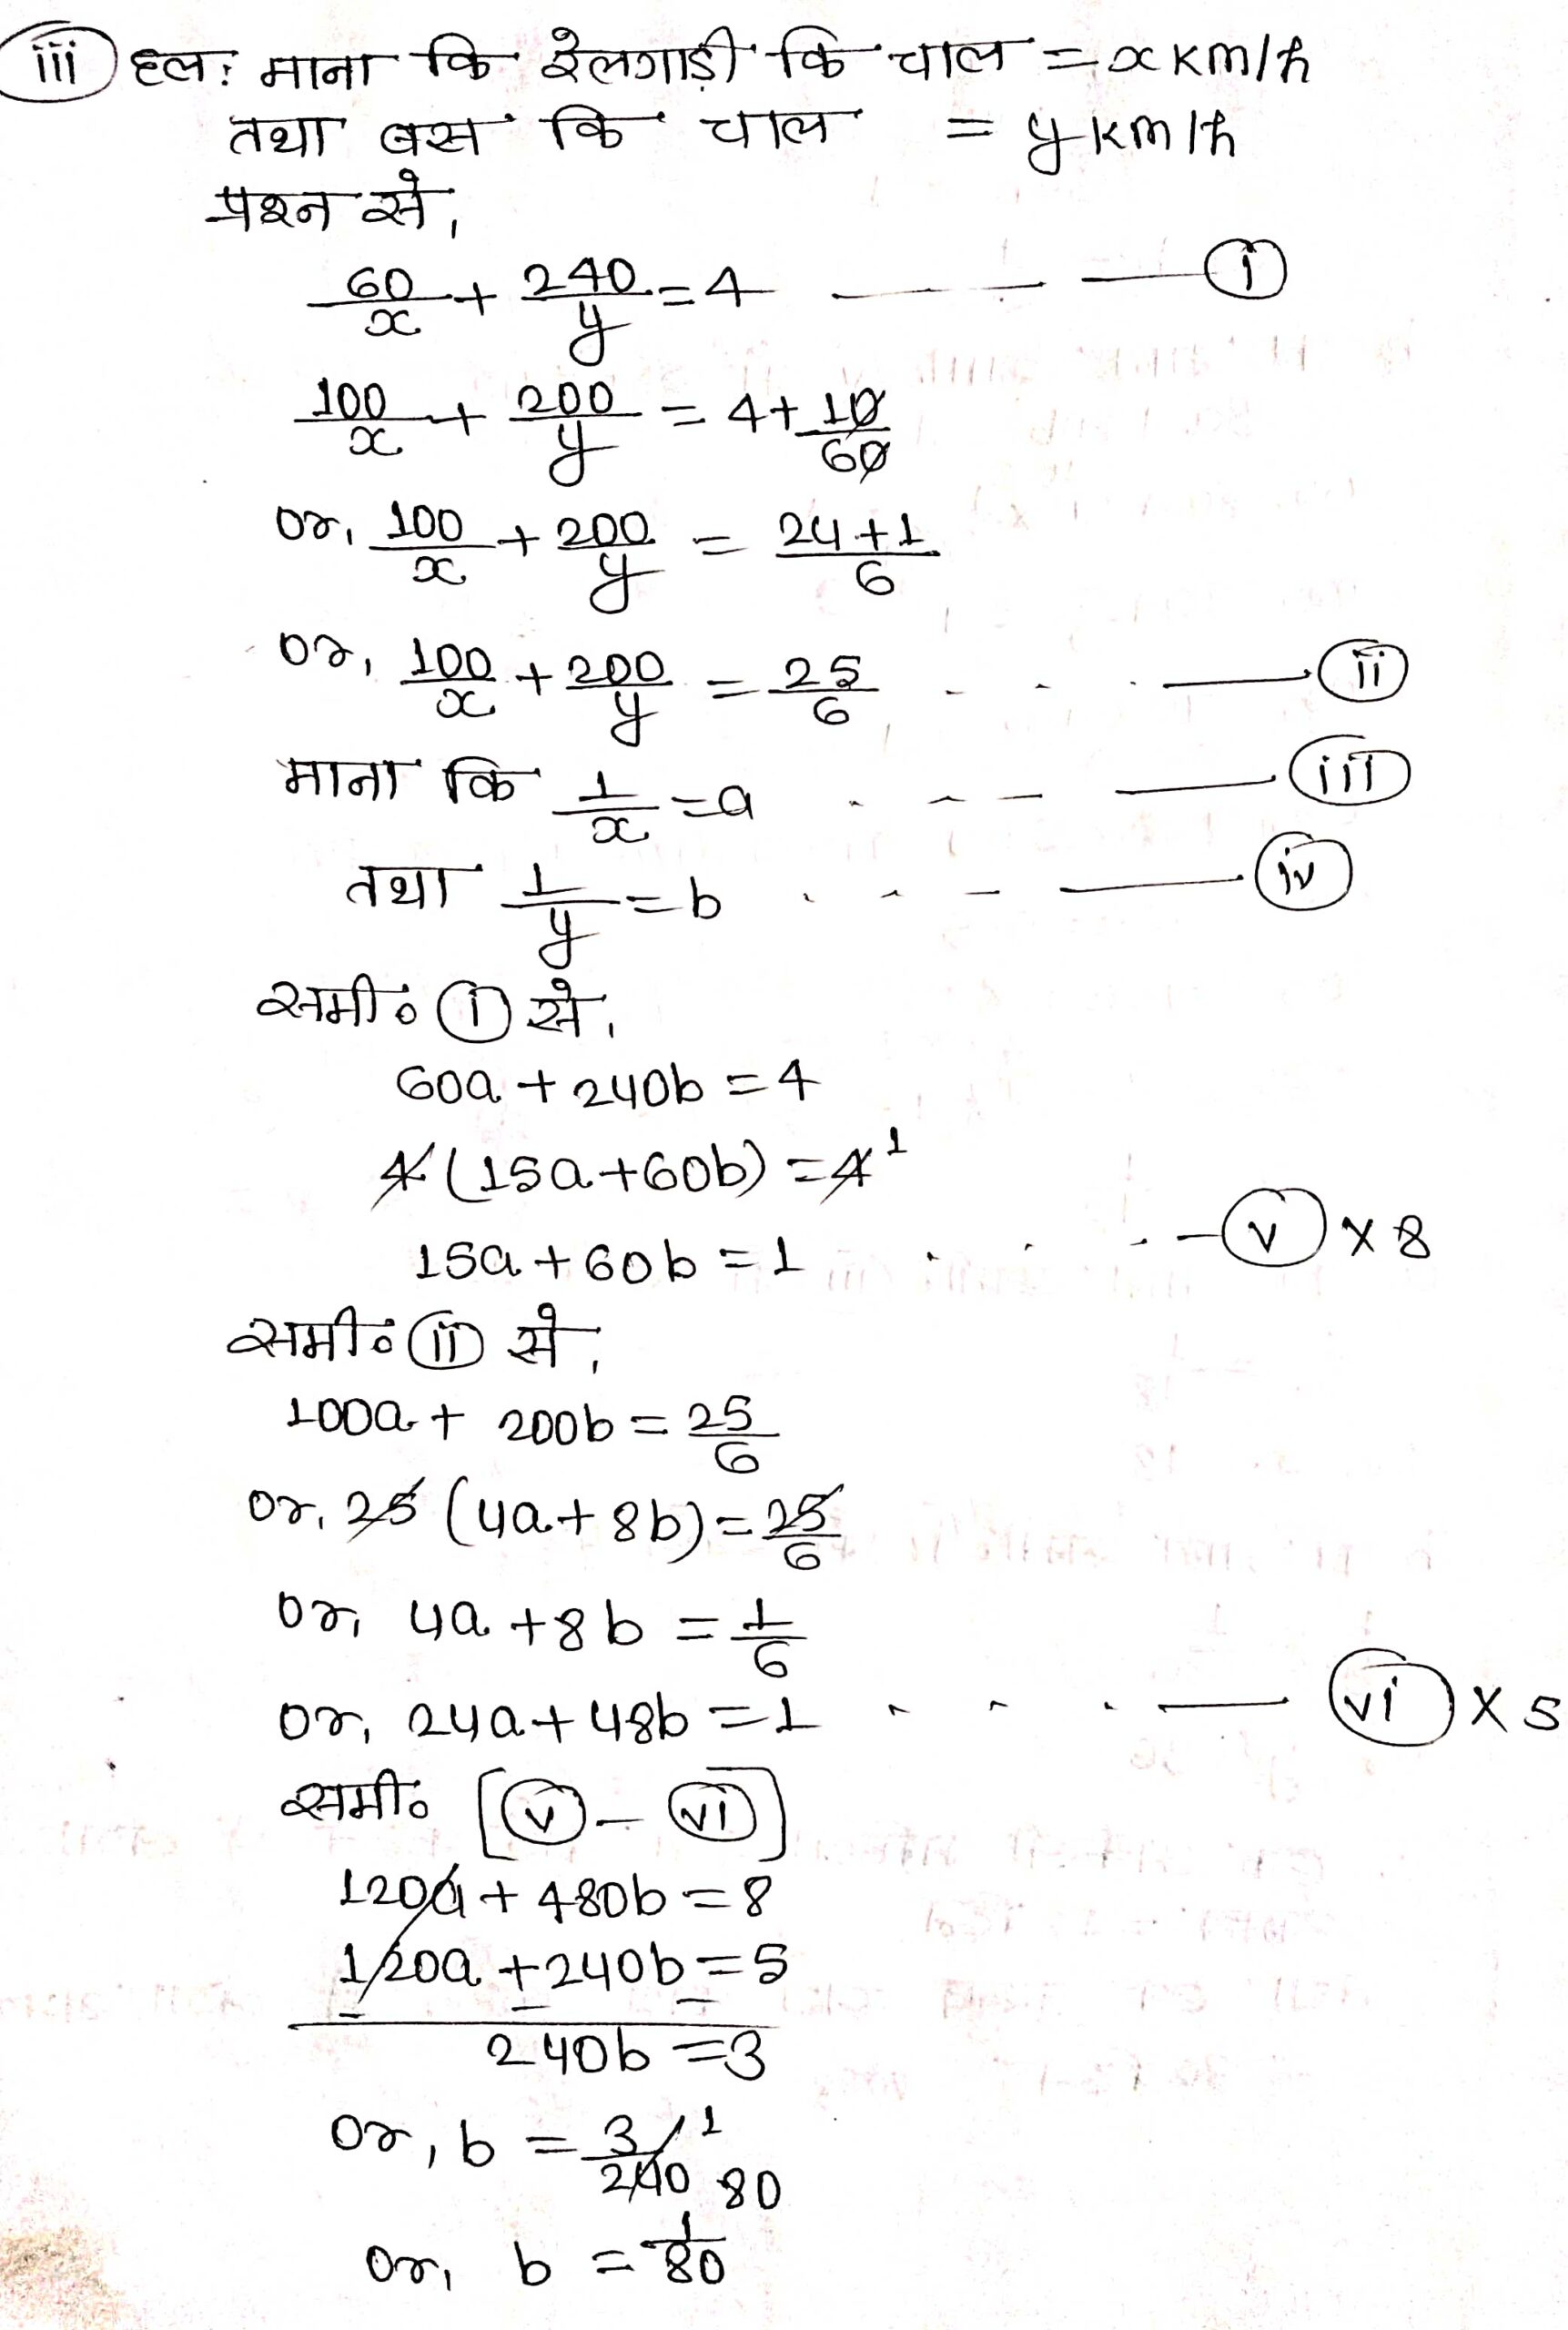 (iii) हल: माना कि रेलगाड़ी कि चाल = x km/h
तथा बस कि चाल = y km/h
प्रश्न से,
60/x + 240/y = 4 - - - (i)
100/x + 200/y = 4 + 10/60
or, 100/x + 200/y = 24+1/6
or, 100/x + 200/y = 25/6 - - - (ii)
माना कि 1/x = a - - - (iii)
तथा 1/y = b - - - (iv)
समी० (i) से,
60a + 240b = 4
4(15a+60b) = 4 1
15a + 60b = 1 - - - (v) × 8
समी० (ii) से,
100a + 200b = 25/6
or, 25 (4a + 8b) = 25/6
or, 4a + 8b = 1/6
or, 24a + 48b = 1 - - - (vi) × 5
समी० [(v) - (vi)]
120a + 480b = 8
120a + 240b = 5
- - -
240b = 3
or, b = 3/240 1 80
or, b = 1/80